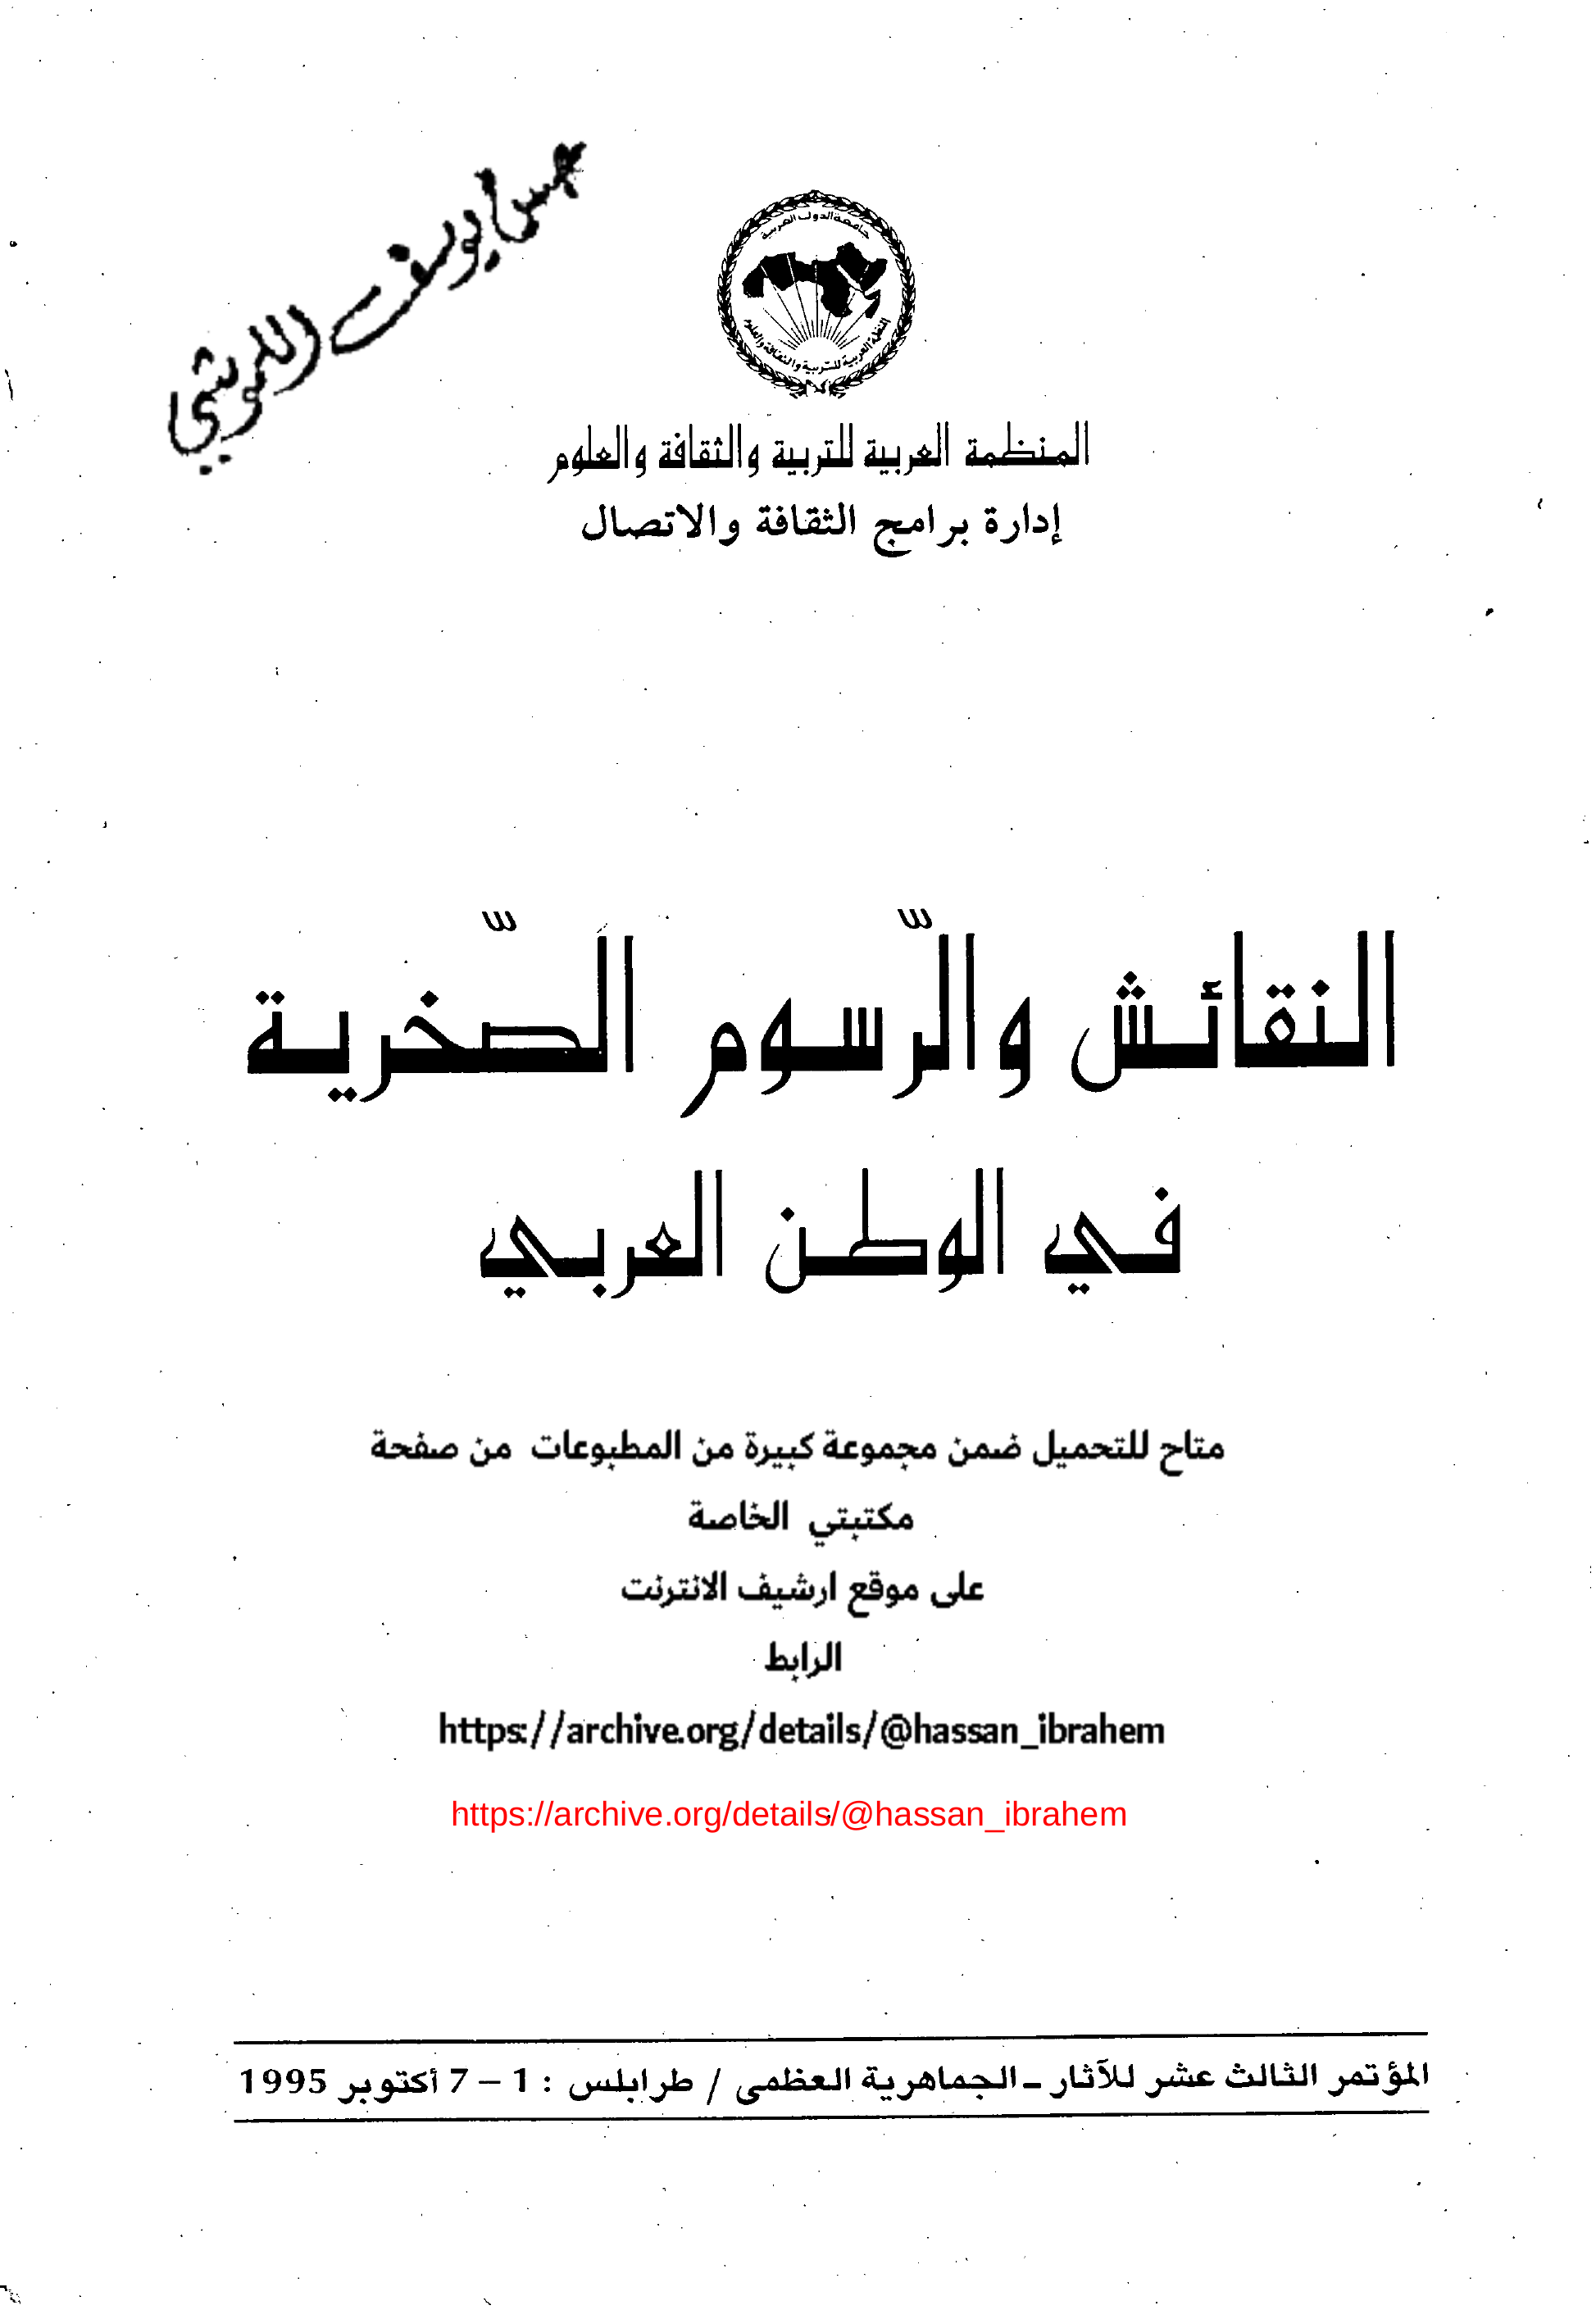 جامعة الدول العربية
المنظمة العربية للتربية والثقافة والعلوم
يوسف
المنظمة العربية للتربية والثقافة والعلوم
إدارة برامج الثقافة والاتصال
النقائش والرّسوم الصّخرية
في الوطن العربي
متاح للتحميل ضمن مجموعة كبيرة من المطبوعات من صفحة
مكتبتي الخاصة
على موقع ارشيف الانترنت
الرابط
https://archive.org/details/@hassan_ibrahem
https://archive.org/details/@hassan_ibrahem
المؤتمر الثالث عشر للآثار - الجماهرية العظمى / طرابلس : 1 – 7 أكتوبر 1995